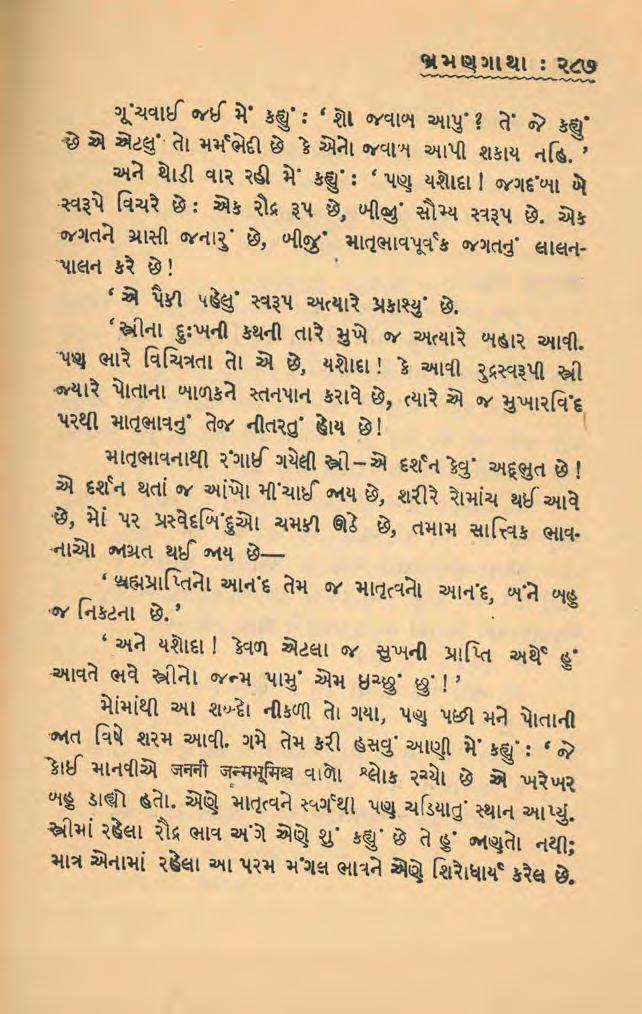 ભ્રમણગાથા : ૨૮૭
ગૂંચવાઈ જઈ મેં કહ્યું : ‘ શો જવાબ આપું ? તેં જે કહ્યું
છે એ એટલું તો મર્મભેદી છે કે એનો જવાબ આપી શકાય નહિ. ’
અને થોડી વાર રહી મેં કહ્યું : ‘ પણ યશોદા ! જગદંબા બે
સ્વરૂપે વિચરે છે : એક રૌદ્ર રૂપ છે, બીજું સૌમ્ય સ્વરૂપ છે. એક
જગતને ગ્રાસી જનારું છે, બીજું માતૃભાવપૂર્વક જગતનું લાલન-
પાલન કરે છે !
‘ એ પૈકી પહેલું સ્વરૂપ અત્યારે પ્રકાશ્યું છે.
‘ સ્ત્રીના દુઃખની કથની તારે મુખે જ અત્યારે બહાર આવી.
પણ ભારે વિચિત્રતા તો એ છે, યશોદા ! કે આવી રુદ્રસ્વરૂપી સ્ત્રી
જ્યારે પોતાના બાળકને સ્તનપાન કરાવે છે, ત્યારે એ જ મુખારવિંદ
પરથી માતૃભાવનું તેજ નીતરતું હોય છે !
માતૃભાવનાથી રંગાઈ ગયેલી સ્ત્રી – એ દર્શન કેવું અદ્ભુત છે !
એ દર્શન થતાં જ આંખો મીંચાઈ જાય છે, શરીરે રોમાંચ થઈ આવે
છે, મોં પર પ્રસ્વેદબિંદુઓ ચમકી ઊઠે છે, તમામ સાત્ત્વિક ભાવ-
નાઓ જાગ્રત થઈ જાય છે—
‘ બ્રહ્મપ્રાપ્તિનો આનંદ તેમ જ માતૃત્વનો આનંદ, બંને બહુ
જ નિકટના છે. ’
‘ અને યશોદા ! કેવળ એટલા જ સુખની પ્રાપ્તિ અર્થે હું
આવતે ભવે સ્ત્રીનો જન્મ પામું એમ ઇચ્છું છું ! ’
મોંમાંથી આ શબ્દો નીકળી તો ગયા, પણ પછી મને પોતાની
જાત વિષે શરમ આવી. ગમે તેમ કરી હસવું આણી મેં કહ્યું : ‘ જે
કોઈ માનવીએ जननी जन्मभूमिश्च વાળો શ્લોક રચ્યો છે એ ખરેખર
બહુ ડાહ્યો હતો. એણે માતૃત્વને સ્વર્ગથી પણ ચડિયાતું સ્થાન આપ્યું.
સ્ત્રીમાં રહેલા રૌદ્ર ભાવ અંગે એણે શું કહ્યું છે તે હું જાણતો નથી;
માત્ર એનામાં રહેલા આ પરમ મંગલ ભાવને એણે શિરોધાર્ય કરેલ છે.